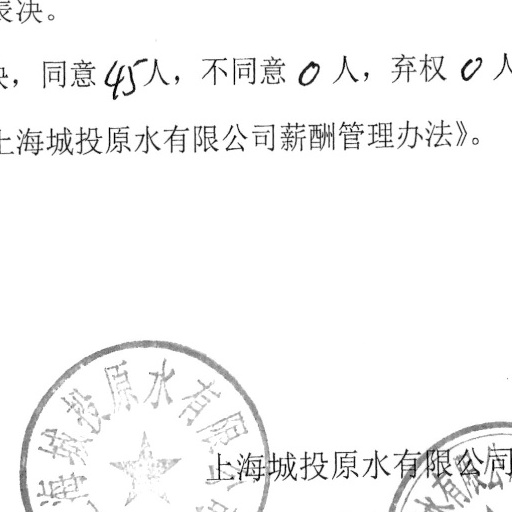 表决。
决，同意45人，不同意0人，弃权0人
上海城投原水有限公司薪酬管理办法》。
海城投原水有限公司
上海城投原水有限公司
水有限公